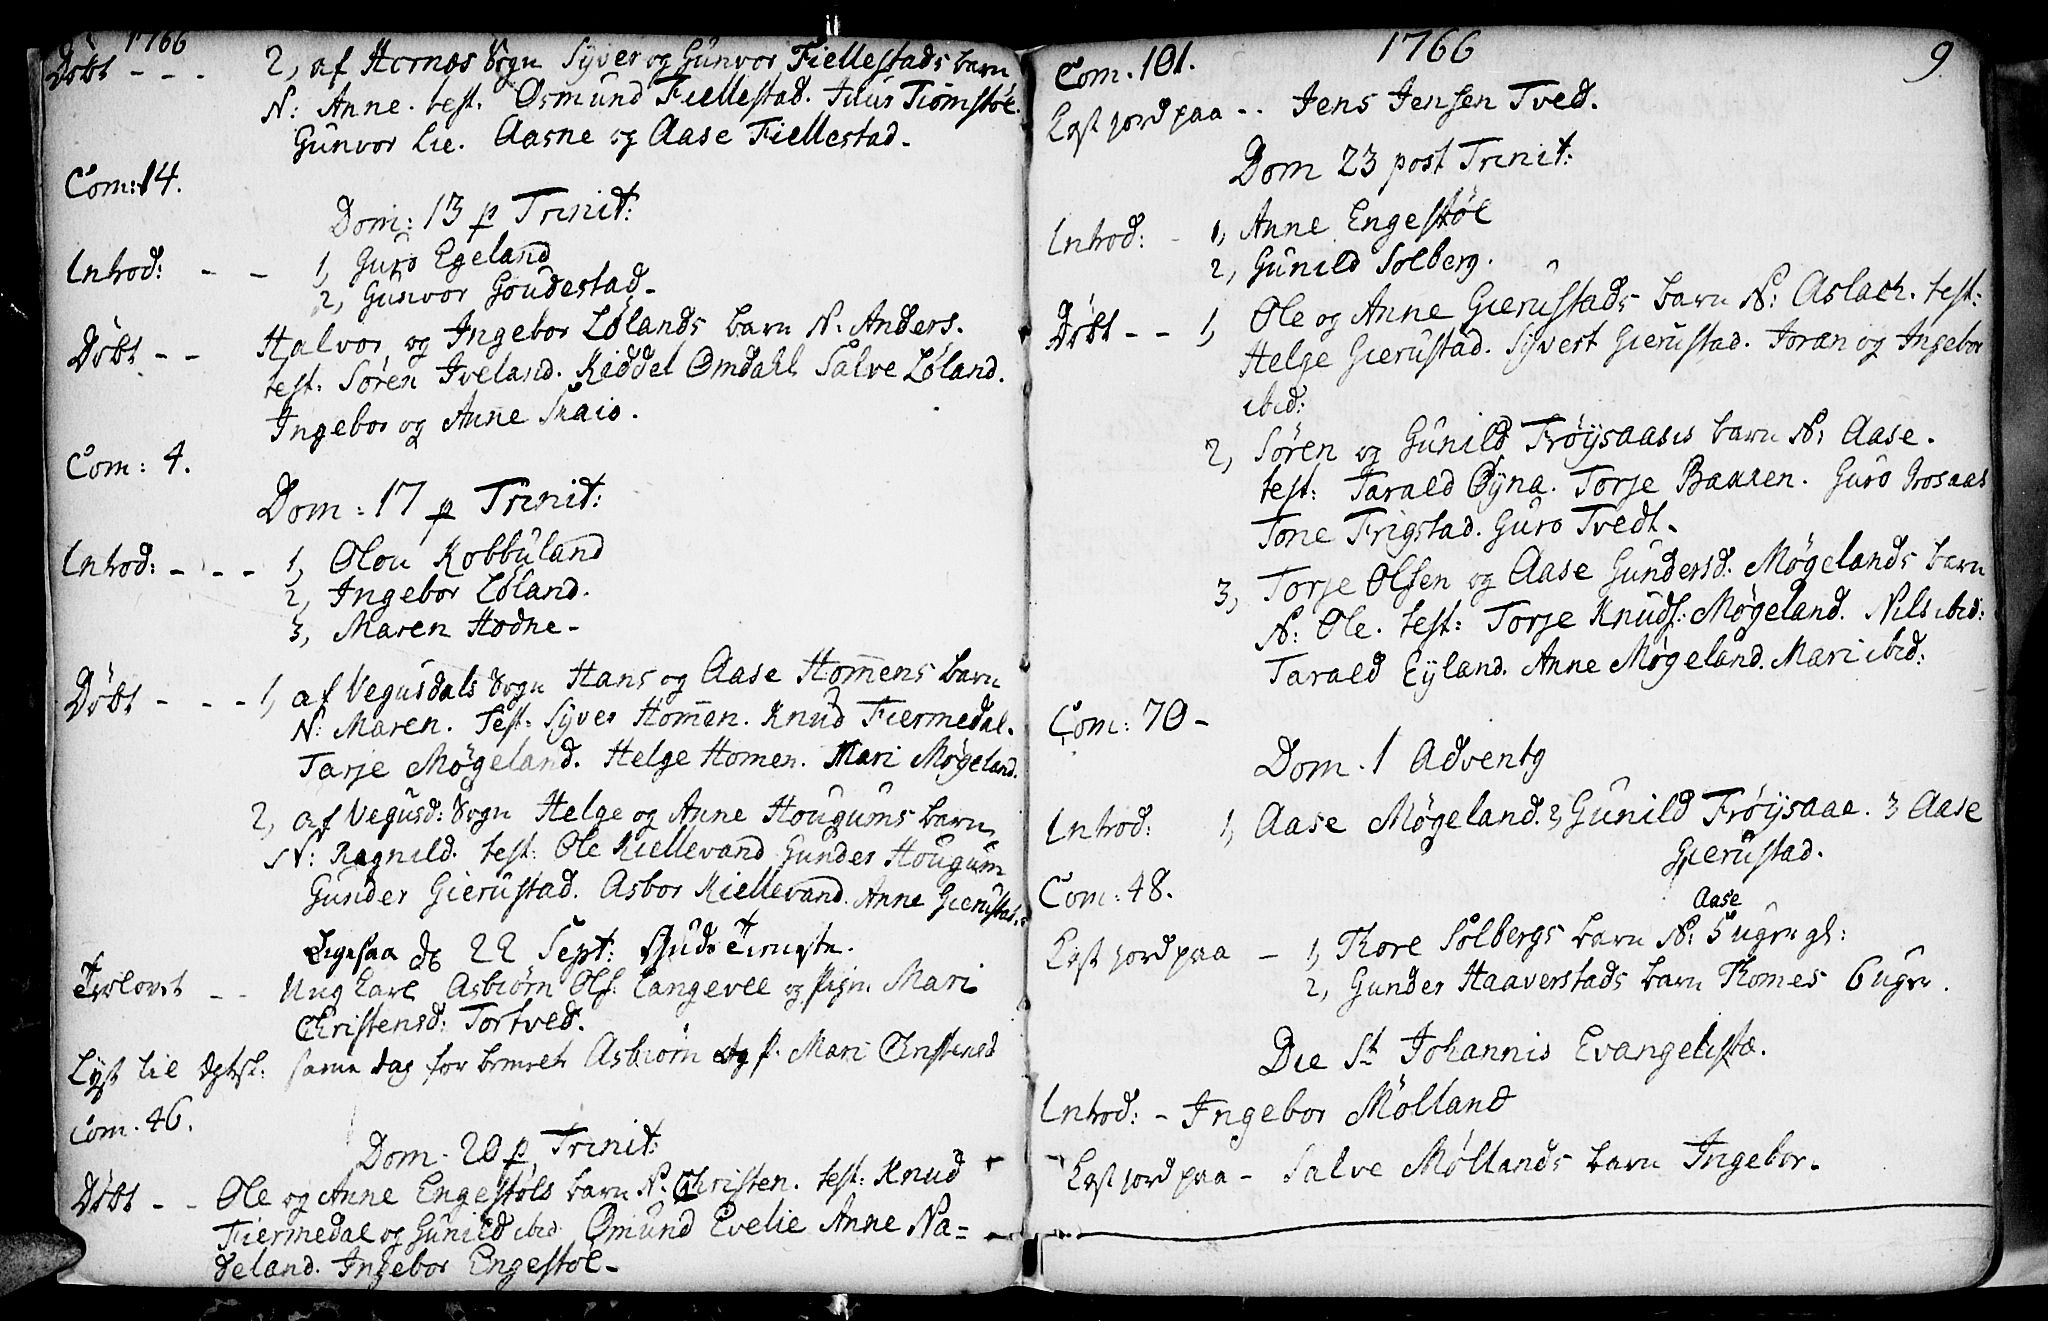 1766
Døbt - - - 2, af Hornæs Sogn Syver og Gunvor Fiellestads barn
N: Anne. test. Osmund Fiellestad. Tiomstøl.
Gunvor Lie. Aasne og Aase Fiellestad.
Com: 14.
Dom: 13 p Trinit:
Introd: - - 1, Guro Egeland
2, Gunvor Goudestad.
Døbt - - Halvor og Ingebor Lølands barn N: Anders.
test: Søren Iveland. Kiddel Omdahl Salve Løland.
Ingebor og Anne Skaio.
Com: 4.
Dom: 17 p Trinit:
Introd: - - - 1, Olou Kobbuland
2, Ingebor Løland.
3, Maren Hodne.
Døbt - - - 1, af Vegusdals Sogn Hans og Aase Hom̅ens barn
N: Maren. Test: Syver Hom̅en. Knud Fiermedal.
Tarje Møgeland. Helge Homen. Mari Møgeland.
2, af Vegusd: Sogn Helge og Anne Hougums barn
N: Ragnild. test: Ole Kiellevand Gunder Hougum
Gunder Gierustad. Asbor Kiellevand. Anne Gierustad.
Ligesaa d 22 Sept: Guds Tieniste.
Trolovet - - Ung Karl Asbiørn Ols: Langevel og Pign Mari
Christensd: Tortved.
Lyst til Egtsk: samme dag for bemelte Asbiørn og p. Mari Christensd
Com. 46.
Dom. 20 p Trinit:
Døbt - - Ole og Anne Engestøls barn N: Christen. test: Knud
Fiermedal og Gunild ibid Omund Evelie Anne Na=
deland. Ingebor Engestøl.
1766 9.
Com. 101.
Kast jord paa - - Jens Jensen Tved.
Dom 23 post Trinit:
Introd: - 1, Anne Engestøl
2, Gunild Solberg.
Døbt - - 1, Ole og Anne Gierustads barn N: Aslach. test:
Helge Gierustad. Syvert Gierustad. Joran og Ingebor
ibid:
2, Søren og Gunild Frøysaas barn N: Aase.
test: Tarald Øyna. Torje Baaren. Guro Frosaas
Tone Frigstad. Guro Tvedt.
3, Torje Olsen og Aase Gundersd: Møgelands barn
N: Ole. test: Torje Knuds: Møgeland. Nils ibid:
Tarald Eyland. Anne Møgeland. Mari ibid:
Com: 70 -
Dom. 1 Advents
Introd: 1, Aase Møgeland. 2, Gunild Frøysaae. 3 Aase
Gierustad.
Com: 48.
Aase
Kast jord paa - 1, Thore Solbergs barn N: 5 uger gl:
2, Gunder Haaverstads barn Thomes 6 uger.
Die St Johannis Evangelistæ.
Introd: - Ingebor Mølland
Kast jord paa - Salve Møllands barn Ingebor.